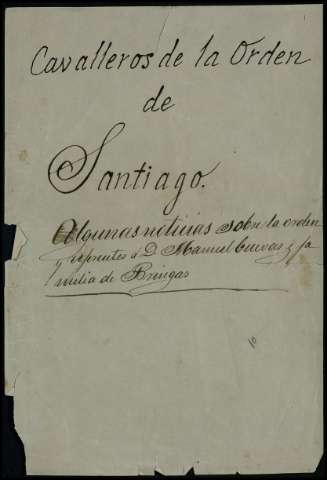 Cavalleros de la Orden
de
Santiago.
Algunas noticias sobre la orden
y referentes á D. Manuel Cuevas y fa
milia de Bringas
10